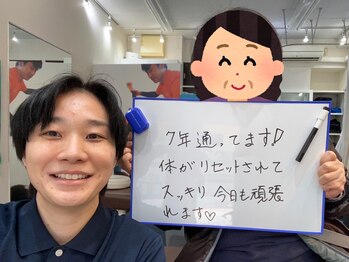 7年通ってます♪
体がリセットされて
スッキリ 今日も頑張
れます♡